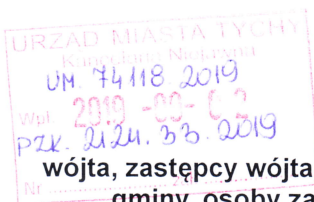 URZĄD MIASTA TYCHY
UM. 74118. 2019
Wpł. 2019 -09- 02
PZK. 2124. 33. 2019
wójta, zastępcy wójta
Nr
gminy, osoby za